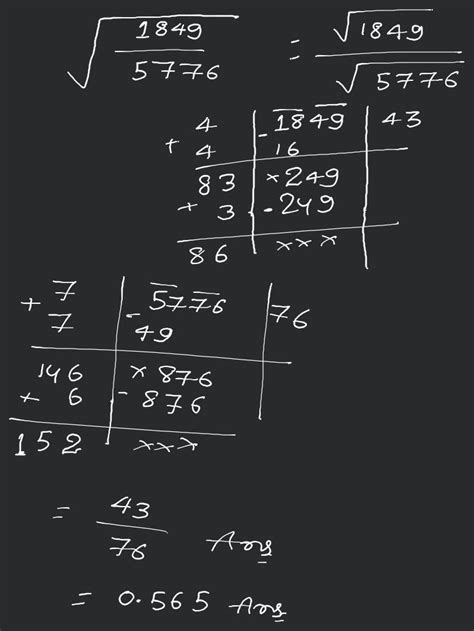 √(1849/5776) = √1849/√5776
4 | -1849 | 43
+ 4 | 16
83 | ×249
+ 3 | -249
86 | ×××
+ 7 | -5776 | 76
7 | 49
146 | ×876
+ 6 | -876
152 | ×××
= 43/76 Ans
= 0.565 Ans